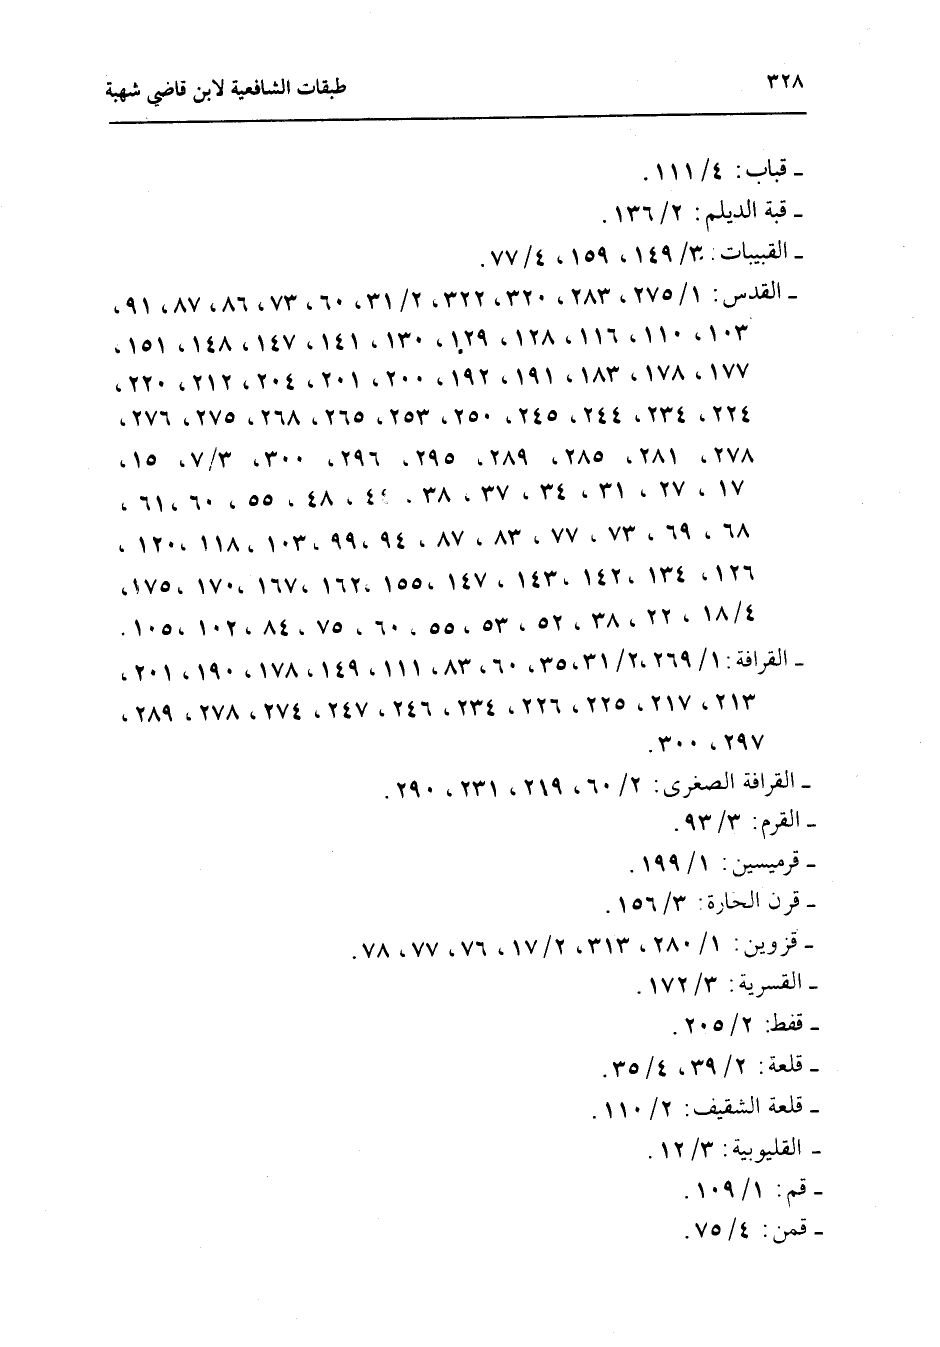 ٣٢٨ طبقات الشافعية لابن قاضي شهبة
ـ قباب: ٤/ ١١١.
ـ قبة الديلم: ٢/ ١٣٦.
ـ القبيبات: ٣/ ١٤٩، ١٥٩، ٤/ ٧٧.
ـ القدس: ١/ ٢٧٥، ٢٨٣، ٣٢٠، ٣٢٢، ٢/ ٣١، ٦٠، ٧٣، ٨٦، ٨٧، ٩١،
١٠٣، ١١٠، ١١٦، ١٢٨، ١٢٩، ١٣٠، ١٤١، ١٤٧، ١٤٨، ١٥١،
١٧٧، ١٧٨، ١٨٣، ١٩١، ١٩٢، ٢٠٠، ٢٠١، ٢٠٤، ٢١٢، ٢٢٠،
٢٢٤، ٢٣٤، ٢٤٤، ٢٤٥، ٢٥٠، ٢٥٣، ٢٦٥، ٢٦٨، ٢٧٥، ٢٧٦،
٢٧٨، ٢٨١، ٢٨٥، ٢٨٩، ٢٩٥، ٢٩٦، ٣٠٠، ٣/ ٧، ١٥،
١٧، ٢٧، ٣١، ٣٤، ٣٧، ٣٨، ٤٨، ٥٥، ٦٠، ٦١،
٦٨، ٦٩، ٧٣، ٧٧، ٨٣، ٨٧، ٩٤، ٩٩، ١٠٣، ١١٨، ١٢٠،
١٢٦، ١٣٤، ١٤٢، ١٤٣، ١٤٧، ١٥٥، ١٦٢، ١٦٧، ١٧٠، ١٧٥،
٤/ ١٨، ٢٢، ٣٨، ٥٢، ٥٣، ٥٥، ٦٠، ٧٥، ٨٤، ١٠٢، ١٠٥.
ـ القرافة: ١/ ٢٦٩، ٢/ ٣١، ٣٥، ٦٠، ٨٣، ١١١، ١٤٩، ١٧٨، ١٩٠، ٢٠١،
٢١٣، ٢١٧، ٢٢٥، ٢٢٦، ٢٣٤، ٢٤٦، ٢٤٧، ٢٧٤، ٢٧٨، ٢٨٩،
٢٩٧، ٣٠٠.
ـ القرافة الصغرى: ٢/ ٦٠، ٢١٩، ٢٣١، ٢٩٠.
ـ القرم: ٣/ ٩٣.
ـ قرميسين: ١/ ١٩٩.
ـ قرن الحارة: ٣/ ١٥٦.
ـ قزوين: ١/ ٢٨٠، ٣١٣، ٢/ ١٧، ٧٦، ٧٧، ٧٨.
ـ القسرية: ٣/ ١٧٢.
ـ قفط: ٢/ ٢٠٥.
ـ قلعة: ٢/ ٣٩، ٤/ ٣٥.
ـ قلعة الشقيف: ٢/ ١١٠.
ـ القليوبية: ٣/ ١٢.
ـ قم: ١/ ١٠٩.
ـ قمن: ٤/ ٧٥.